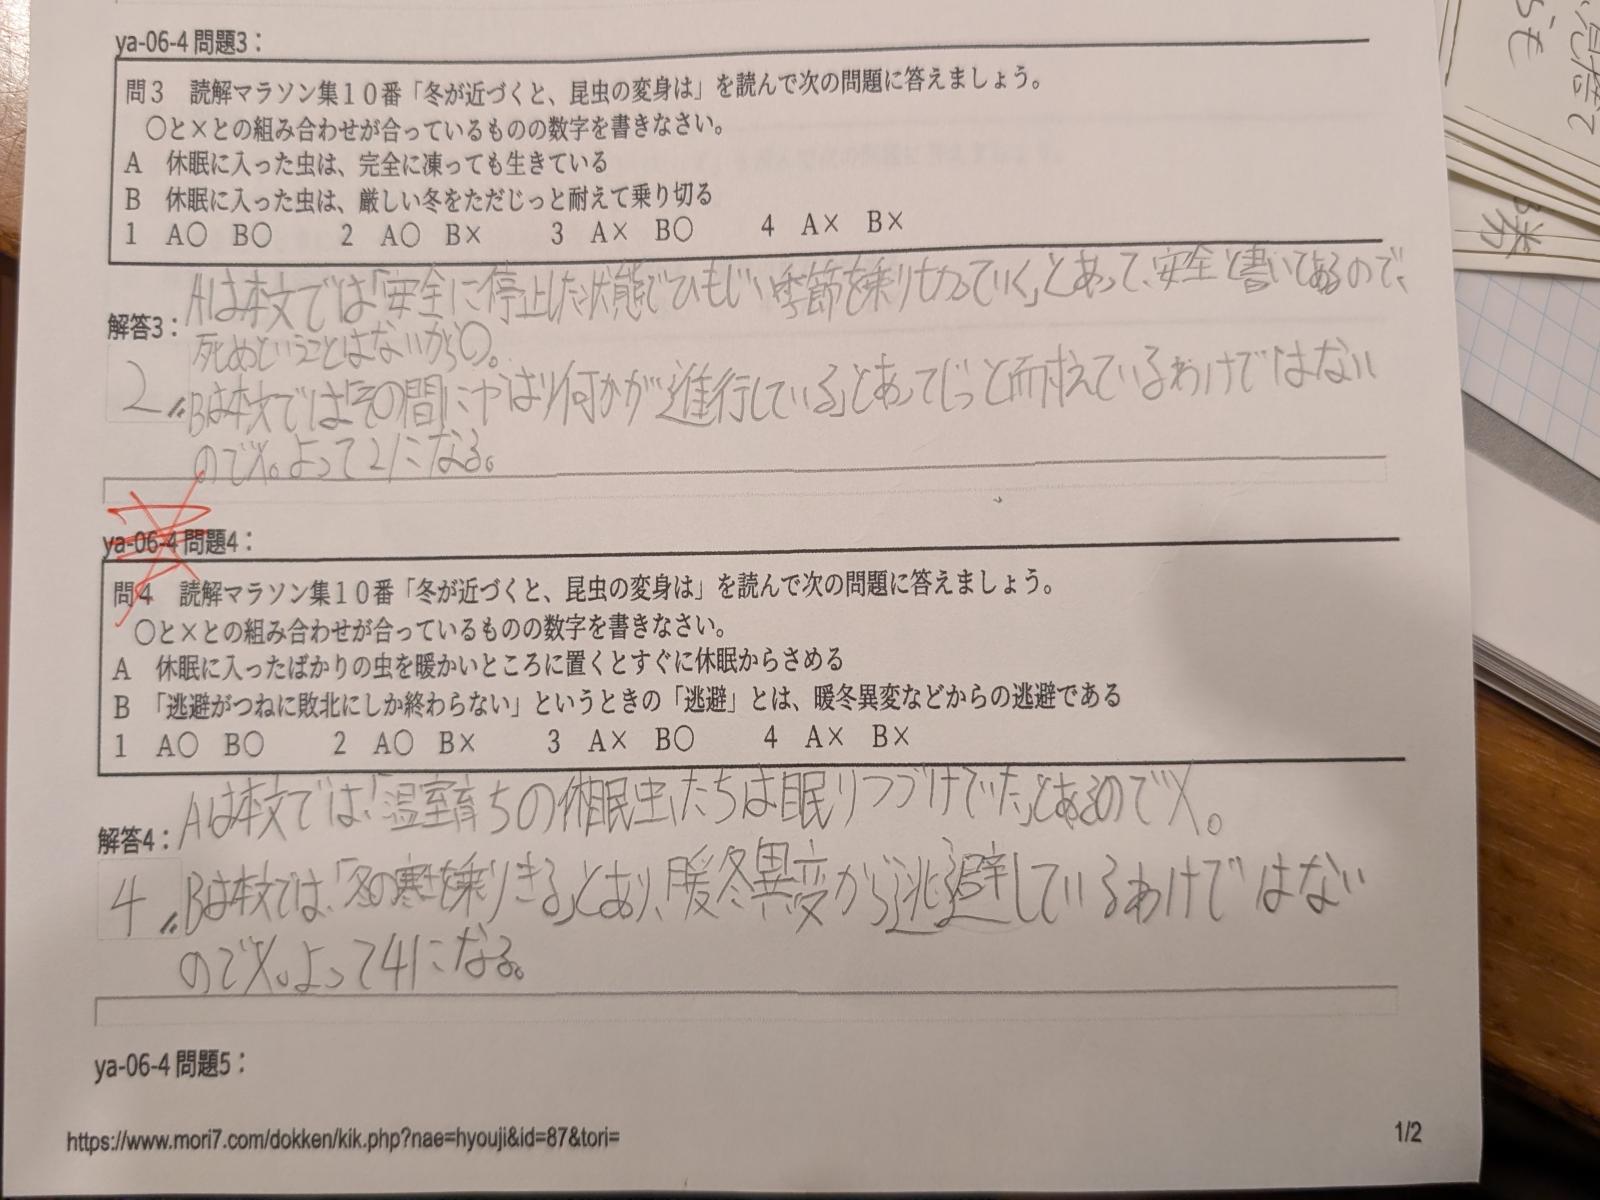 ya-06-4 問題3：
問３　読解マラソン集１０番「冬が近づくと、昆虫の変身は」を読んで次の問題に答えましょう。
○と×との組み合わせが合っているものの数字を書きなさい。
A　休眠に入った虫は、完全に凍っても生きている
B　休眠に入った虫は、厳しい冬をただじっと耐えて乗り切る
1　A○　B○　　2　A○　B×　　3　A×　B○　　4　A×　B×
Aは本文では「安全に停止した状態でひもじい季節を乗りきっていく」とあって、安全と書いてあるので、
解答3：
死ぬということはないから○。
2
Bは本文では「その間にやはり何かが進行している」とあってじっと耐えているわけではない
ので×。よって2になる。
ya-06-4 問題4：
問４　読解マラソン集１０番「冬が近づくと、昆虫の変身は」を読んで次の問題に答えましょう。
○と×との組み合わせが合っているものの数字を書きなさい。
A　休眠に入ったばかりの虫を暖かいところに置くとすぐに休眠からさめる
B　「逃避がつねに敗北にしか終わらない」というときの「逃避」とは、暖冬異変などからの逃避である
1　A○　B○　　2　A○　B×　　3　A×　B○　　4　A×　B×
Aは本文では、「温室育ちの休眠虫たちは眠りつづけていた」とあるので×。
解答4：
4
Bは本文では、「冬の寒さを乗りきる」とあり、暖冬異変から逃避しているわけではない
ので×。よって4になる。
ya-06-4 問題5：
https://www.mori7.com/dokken/kik.php?nae=hyouji&id=87&tori=
1/2